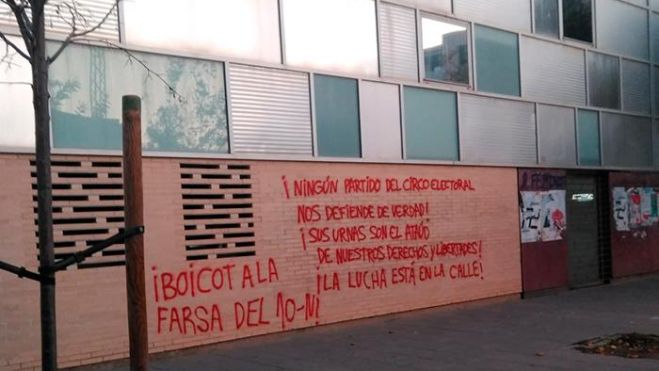 ¡NINGÚN PARTIDO DEL CIRCO ELECTORAL
NOS DEFIENDE DE VERDAD!
¡SUS URNAS SON EL ATAÚD
DE NUESTROS DERECHOS Y LIBERTADES!
¡LA LUCHA ESTÁ EN LA CALLE!
¡BOICOT A LA
FARSA DEL 10-N!